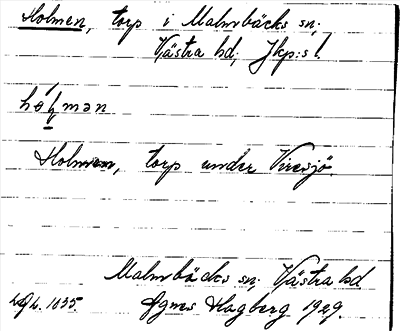 Holmen, torp i Malmbäcks sn;
Västra hd; Jkp:s l.
hólman
Holmen, torp under Viresjö.
Malmbäcks sn, Västra hd
Agnes Hagberg 1929.